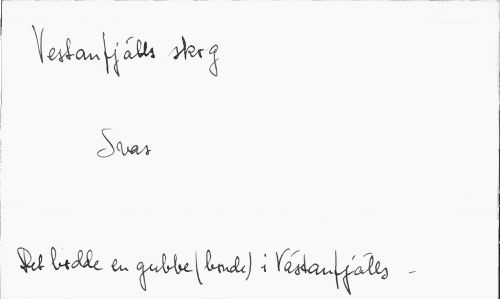 Vestanfjälls skog
Svar
Det bodde en gubbe (bonde) i Västanfjälls -